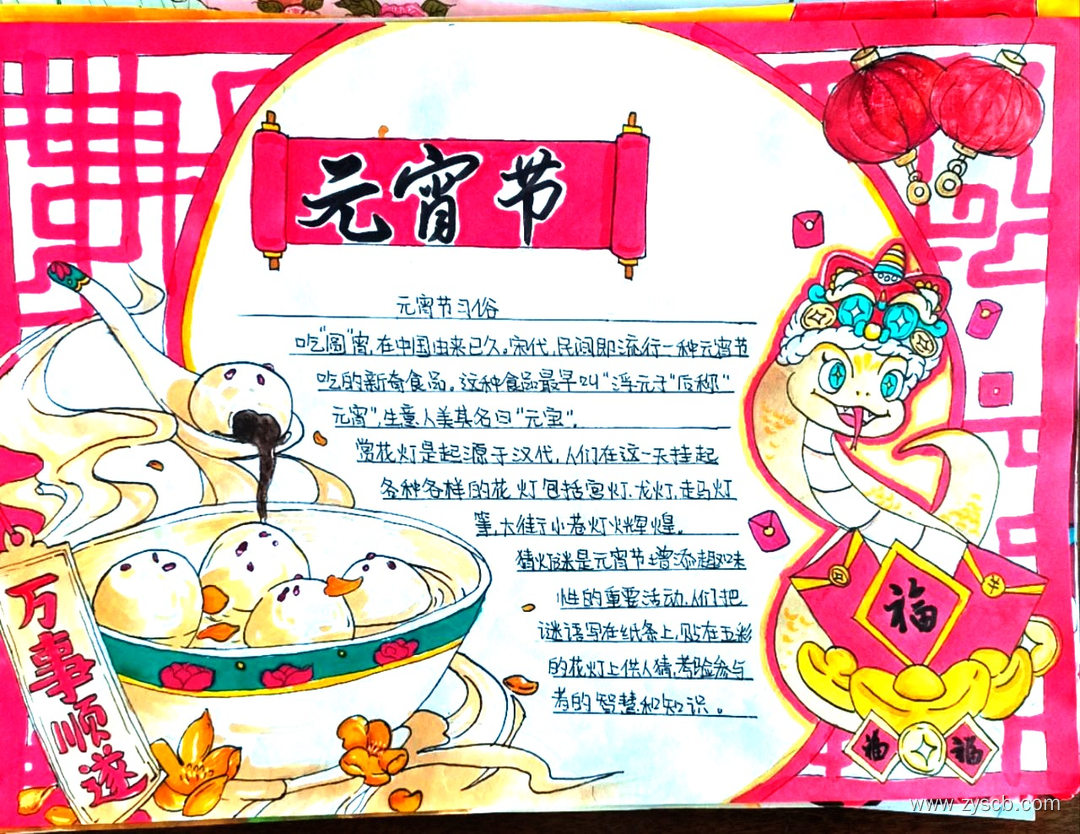 元宵节
元宵节习俗
吃"圆"宵,在中国由来已久,宋代,民间即流行一种元宵节
吃的新奇食品。这种食品最早叫"浮元子"后称"
元宵",生意人美其名曰"元宝"。
赏花灯是起源于汉代,人们在这一天挂起
各种各样的花灯包括宫灯、龙灯、走马灯
等,大街小巷灯火辉煌。
猜灯谜是元宵节增添趣味
性的重要活动,人们把
谜语写在纸条上,贴在五彩
的花灯上供人猜,考验参与
者的智慧和知识。
万事顺遂
福
福
福
www.zyscb.com